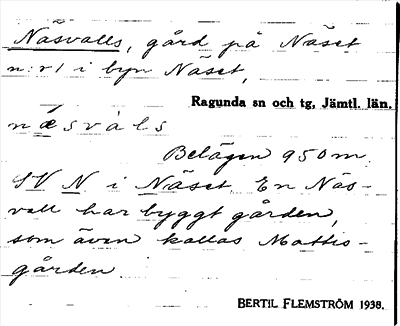 Näsvalls, gård på Näset
n:r 1 i byn Näset,
Ragunda sn och tg, Jämtl. län.
næ´svàls
Belägen 950 m.
SV N i Näset. En Näs-
vall har byggt gården,
som även kallas Mattis-
gården.
BERTIL FLEMSTRÖM 1938.